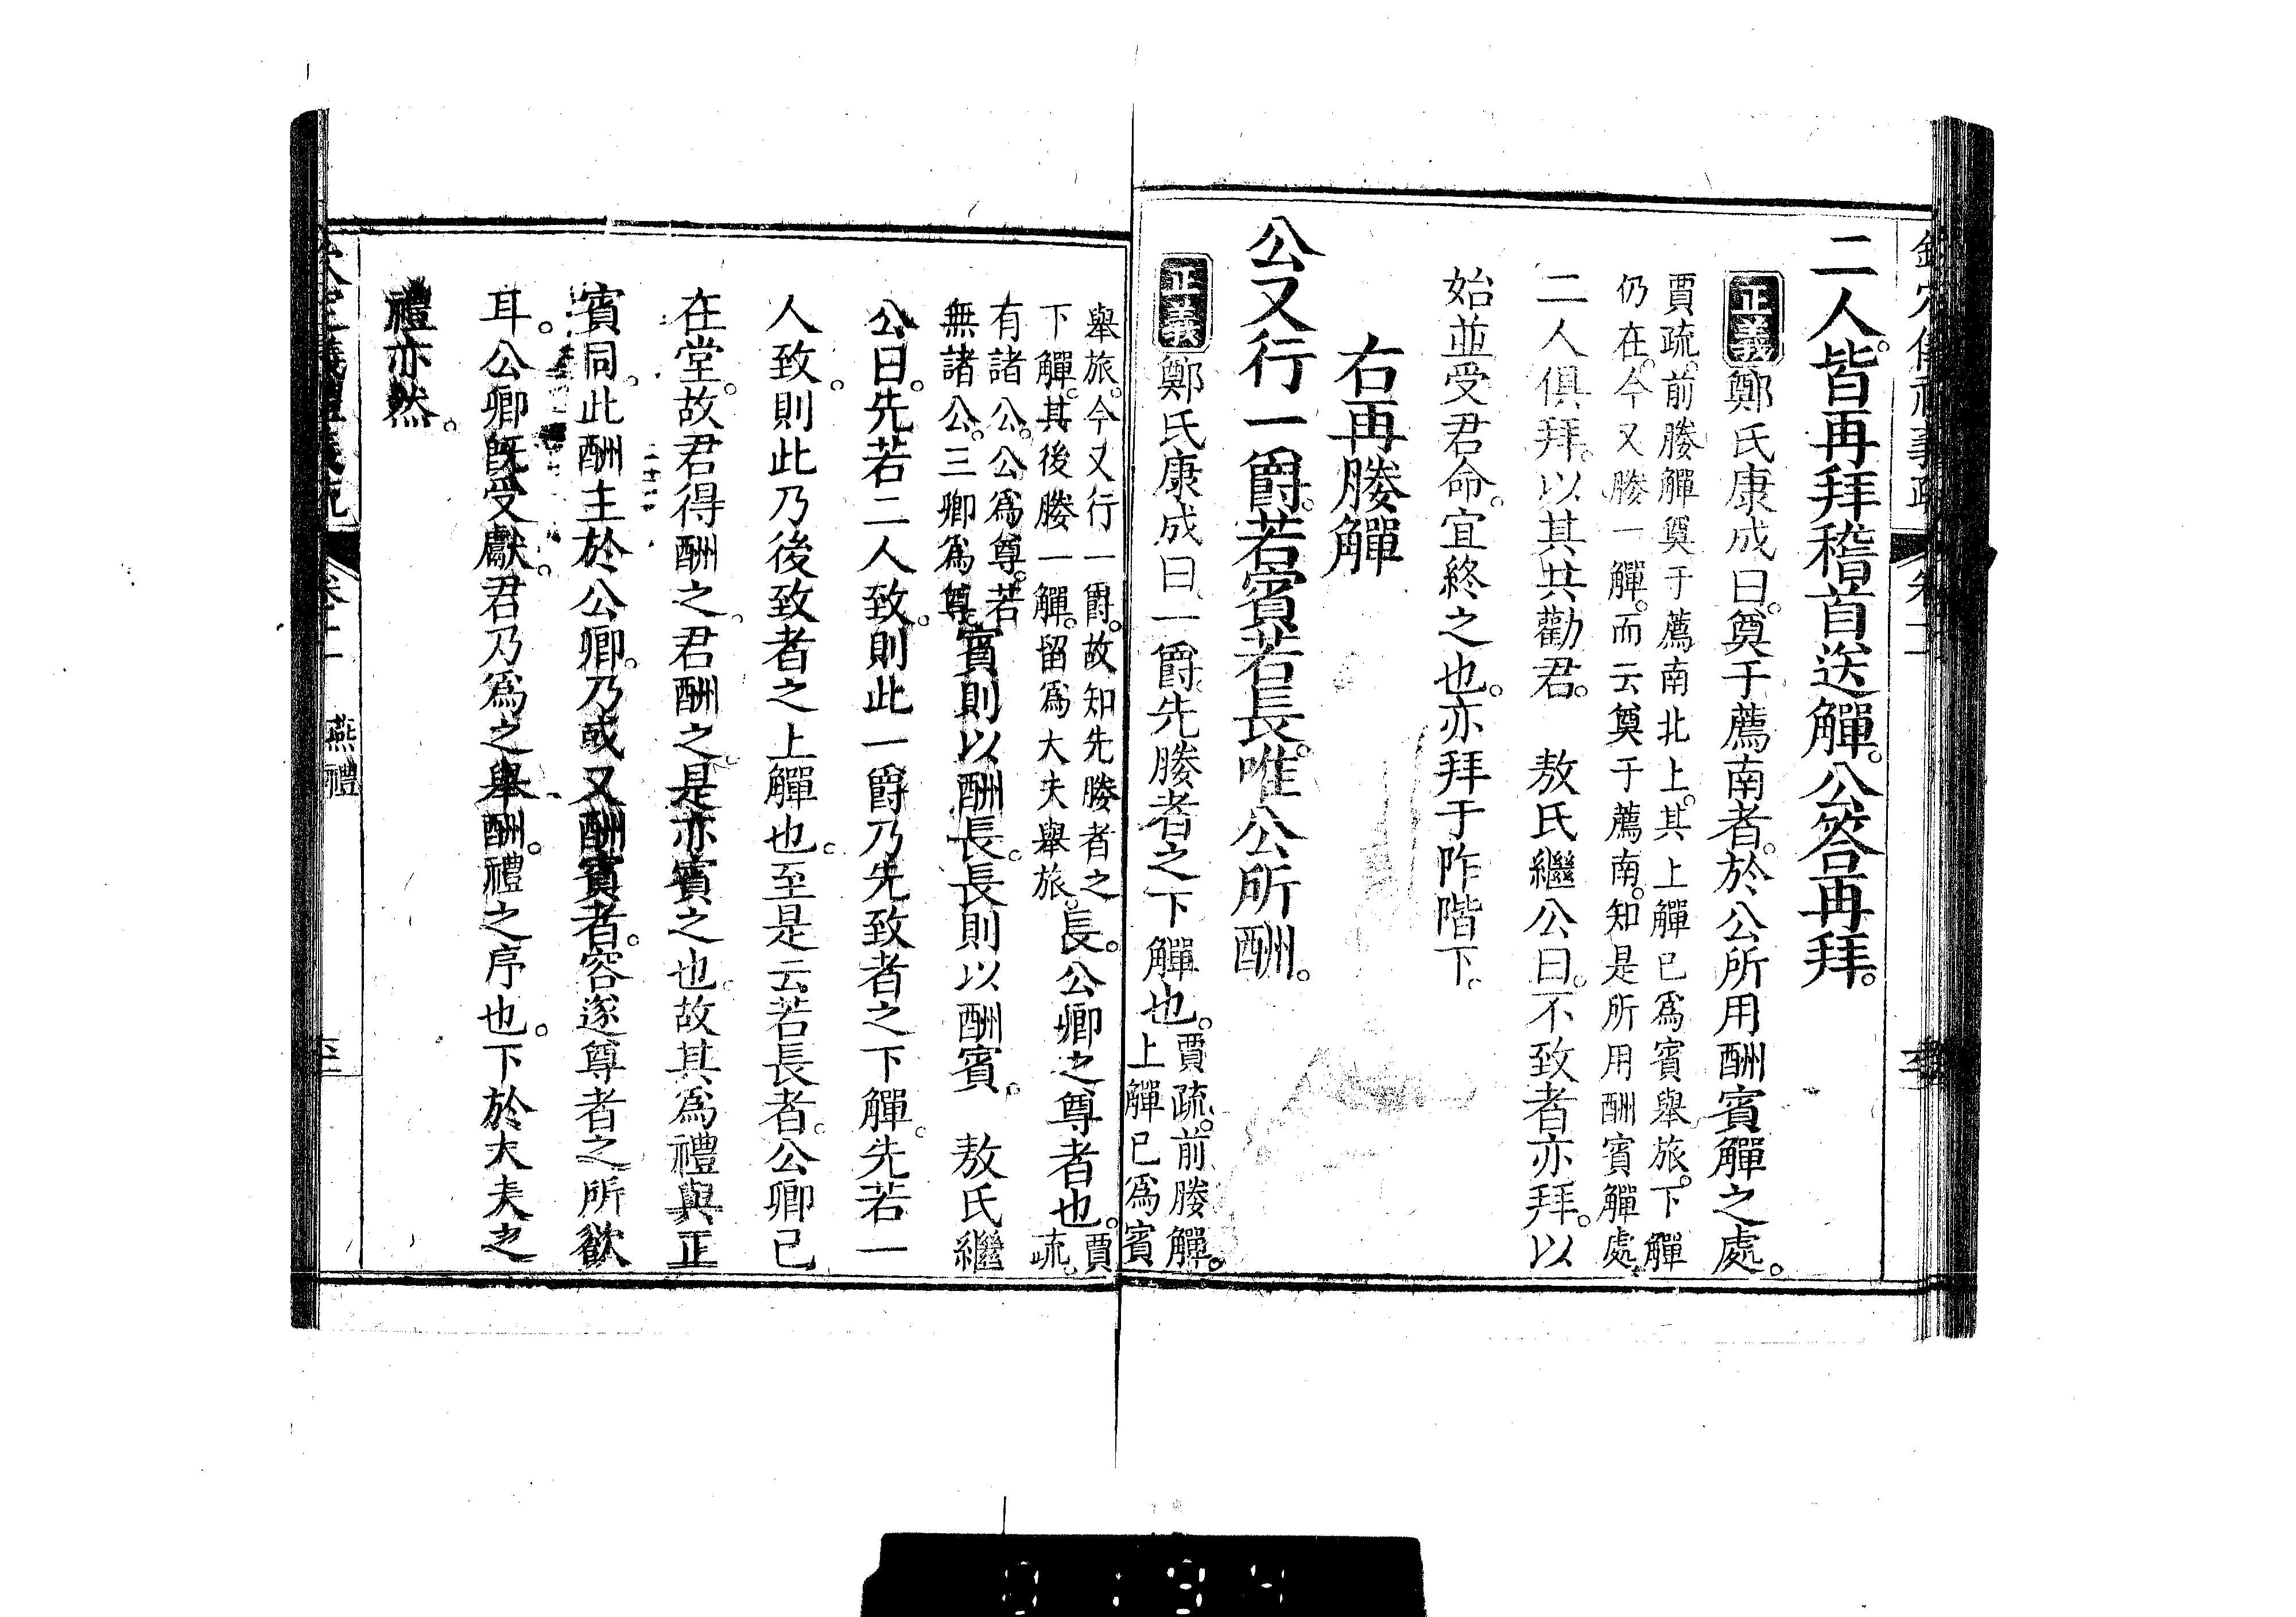 二人。皆再拜稽首送觶。公答再拜。
正義鄭氏康成曰。奠于薦南者。於公所用酬賓觶之處。
賈疏。前媵觶奠于薦南北上。其上觶已爲賓舉旅。下觶
仍在。今又媵一觶。而云奠于薦南。知是所用酬賓觶處。
二人俱拜。以其共勸君。　敖氏繼公曰。不致者亦拜。以
始並受君命。宜終之也。亦拜于阼階下。
右再媵觶
公又行一爵。若賓若長。唯公所酬。
正義鄭氏康成曰。一爵。先媵者之下觶也。賈疏。前媵觶。
上觶已爲賓
舉旅。今又行一爵。故知先媵者之
下觶。其後媵一觶。留爲大夫舉旅。長。公卿之尊者也。賈
疏。
有諸公。公爲尊。若
無諸公。三卿爲尊
賓則以酬長。長則以酬賓。　敖氏繼
公曰。先若二人致。則此一爵乃先致者之下觶。先若一
人致。則此乃後致者之上觶也。至是云若長者。公卿已
在堂。故君得酬之。君酬之。是亦賓之也。故其爲禮與正
賓同。此酬主於公卿。乃或又酬賓者。容遂尊者之所欲
耳。公卿既受獻。君乃爲之舉酬。禮之序也。下於大夫之
禮亦然。
燕禮